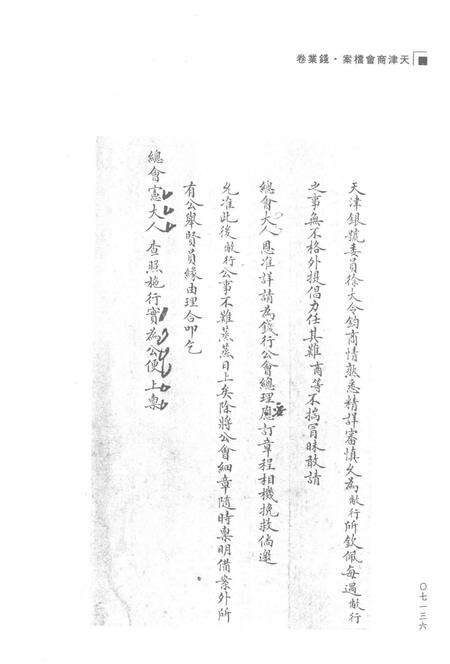 天津商會檔案·錢業卷
天津銀號委員徐大令鈞商情熟悉精詳審慎久為敝行所欽佩每遇敝行
之事無不格外提倡力任其難商等不揣冒昧敢請
總會大人恩准詳請為錢行公會總理應訂章程相機挽救倘邀
允准此後敝行公事不難蒸蒸日上矣除將公會細章隨時稟明備案外所
有公舉賢員緣由理合叩乞
總會憲大人查照施行實為公便上稟
〇七一三六